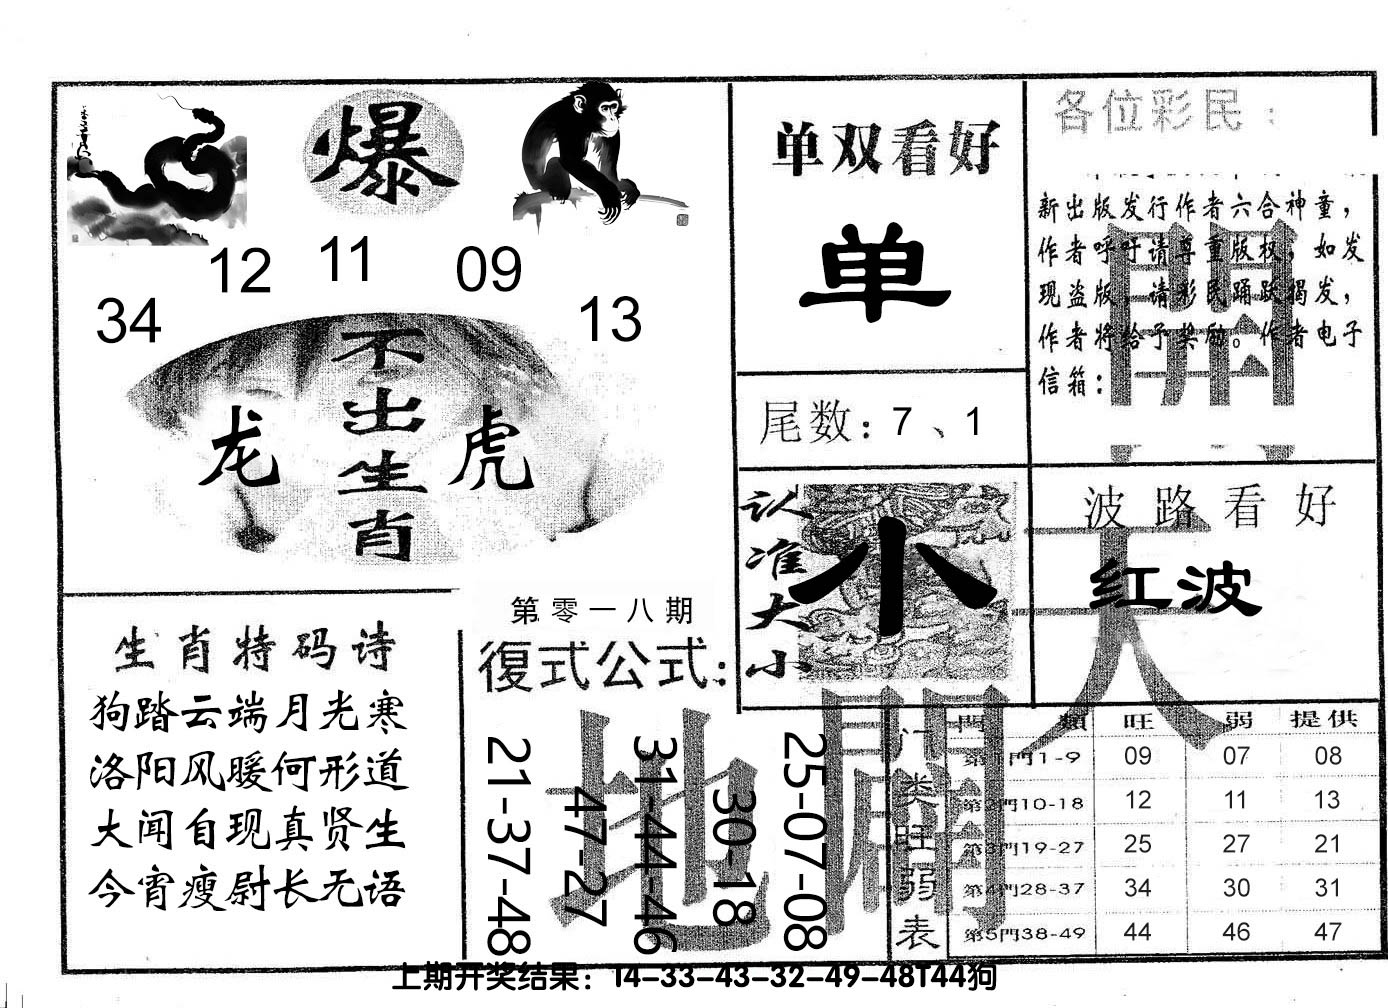 爆
12 11 09
34 13
不出生肖
龙 虎
单双看好
单
尾数：7、1
认准大小
小
各位彩民：
新出版发行作者六合神童，
作者呼吁请尊重版权，如发
现盗版，请彩民踊跃揭发，
作者将给予奖励。作者电子
信箱：
波路看好
红波
生肖特码诗
狗踏云端月光寒
洛阳风暖何形道
大闻自现真贤生
今宵瘦尉长无语
第零一八期
復式公式：
21-37-48
47-27
31-44-46
30-18
25-07-08
天
開
地
門类旺弱表
門 類 旺 弱 提供
第1門1-9 09 07 08
第2門10-18 12 11 13
第3門19-27 25 27 21
第4門28-37 34 30 31
第5門38-49 44 46 47
上期开奖结果：14-33-43-32-49-48T44狗